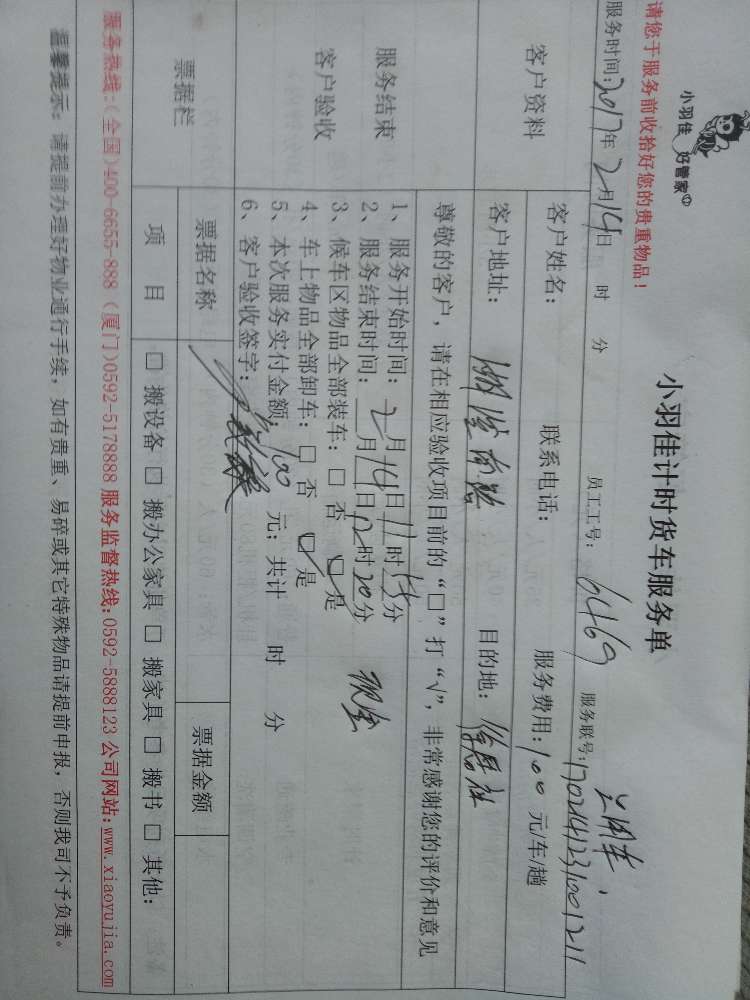 小羽佳 好管家
请您于服务前收拾好您的贵重物品！
小羽佳计时货车服务单
服务时间：2017年2月14日 时 分 员工工号：6469 服务联号：1702141231001211
客户资料
客户姓名： 联系电话： 服务费用：100 元/车/趟
客户地址： 目的地：
服务结束
客户验收
尊敬的客户，请在相应验收项目前的“□”打“√”，非常感谢您的评价和意见
1、服务开始时间：2月14日11时 分
2、服务结束时间： 月 日12时20分 现金
3、候车区物品全部装车：□ 否 □ 是
4、车上物品全部卸车：□ 否 □ 是
5、本次服务实付金额：100 元；共计 时 分
6、客户验收签字：
票据栏
票据名称 票据金额
项 目 □ 搬设备 □ 搬办公家具 □ 搬家具 □ 搬书 □ 其他：
服务热线：(全国)400-6655-888 (厦门)0592-5178888 服务监督热线:0592-5888123 公司网站:www.xiaoyujia.com
温馨提示：请提前办理好物业通行手续，如有贵重、易碎或其它特殊物品请提前申报，否则我司不予负责。